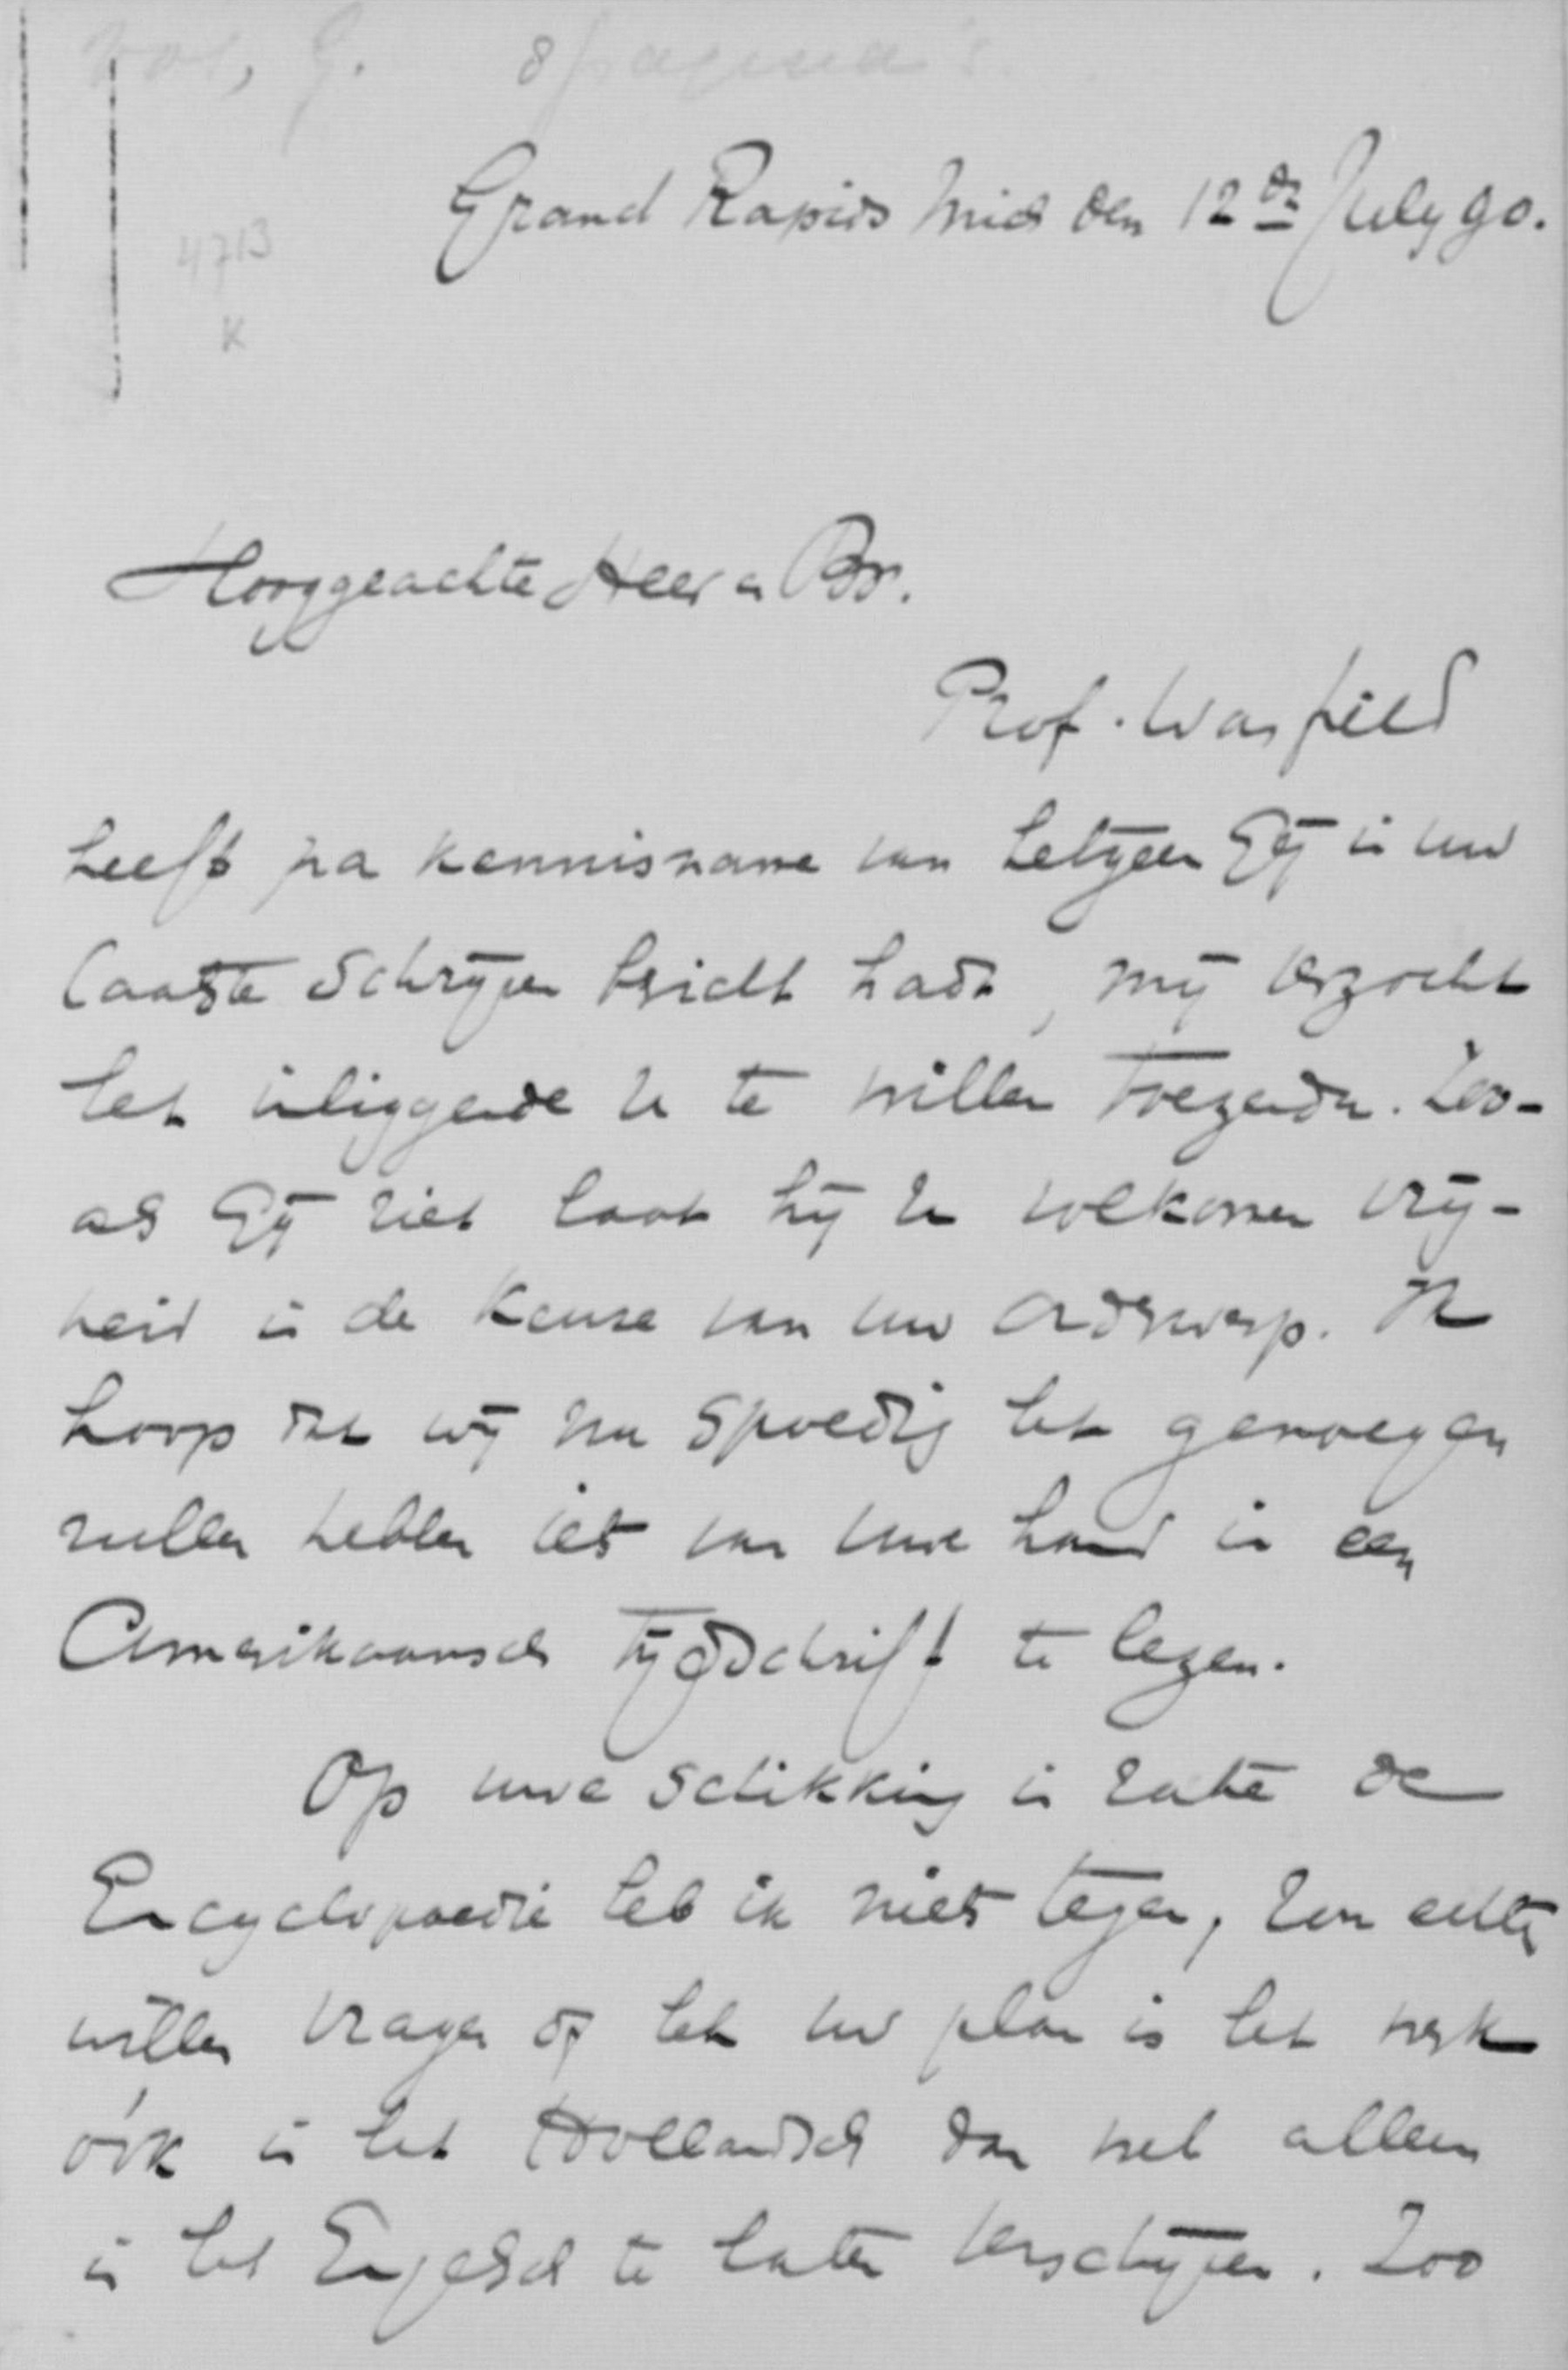 Vos, G. 8 pagina's.
Grand Rapids Mich den 12de July 90.
4713
K
Hooggeachte Heer en Br.
Prof. Warfield
heeft na kennisname van hetgeen Gij in uw
laatste schrijven bericht hadt, mij verzocht
het inliggende U te willen toezenden. Zoo-
als Gij ziet laat hij U volkomen vrij-
heid in de keuze van uw onderwerp. Ik
hoop dat wij nu spoedig het genoegen
zullen hebben iets van Uwe hand in een
Amerikaansch tijdschrift te lezen.
Op uwe schikking in zake de
Encyclopaedie heb ik niets tegen, zou echter
willen vragen of het uw plan is het werk
óók in het Hollandsch dan wel alleen
in het Engelsch te laten verschijnen. Zoo